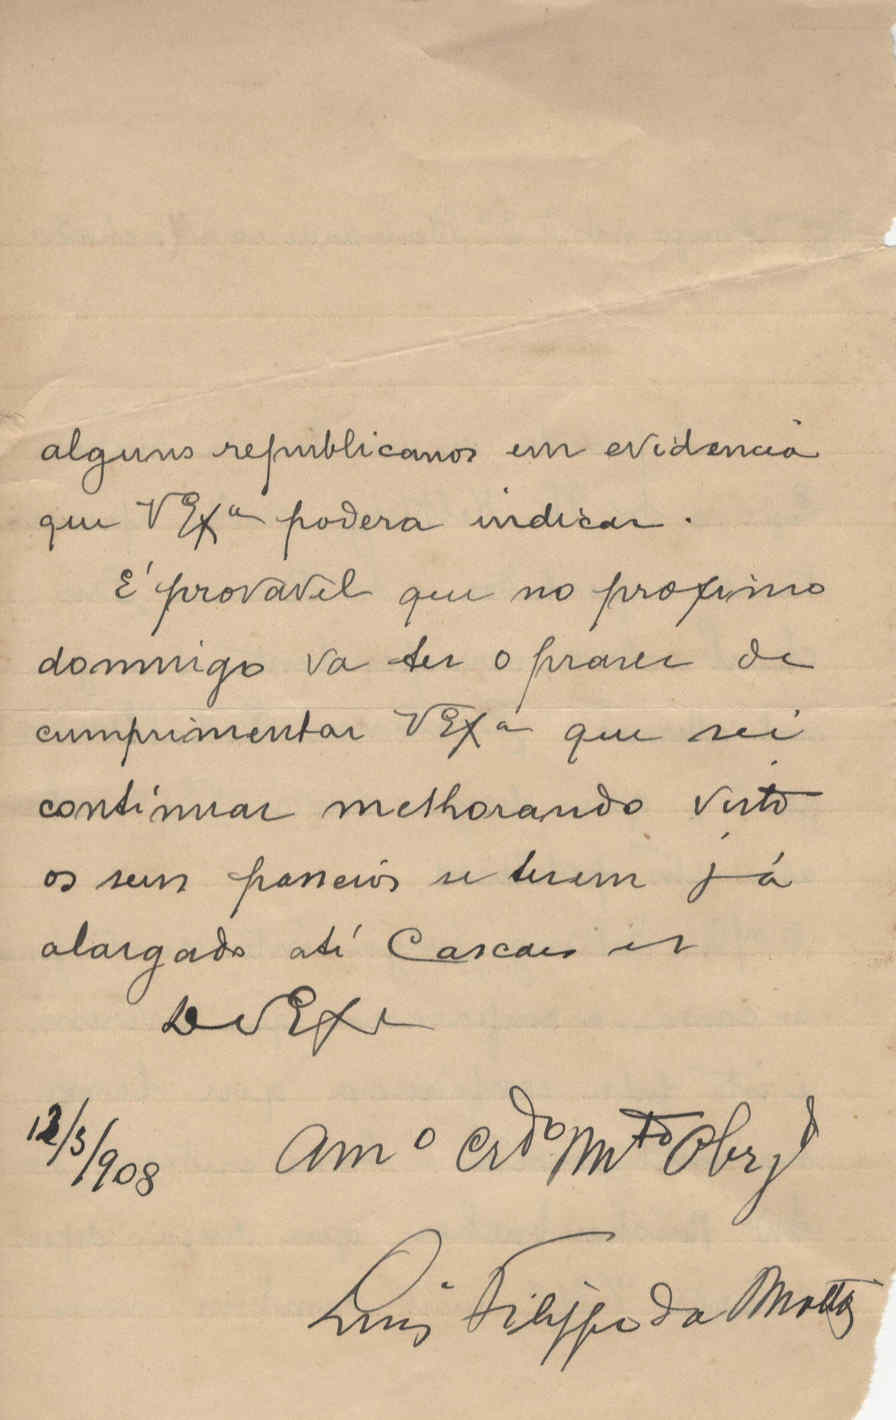 alguns republicanos em evidencia
que VExª podera indicar.
É provavel que no proximo
domingo va ter o praser de
cumprimentar VExª que sei
continuar melhorando visto
os seus passeios se terem já
alargado até Cascaes
De VExª
12/3/908
Amº Crdº Mtº Obrgdº
Luis Filippe da Motta